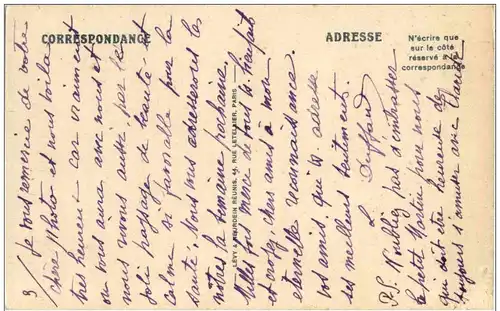 CORRESPONDANCE
ADRESSE
N'écrire que
sur le côté
réservé à la
correspondance
LÉVY & NEURDEIN RÉUNIS, 44, RUE LETELLIER, PARIS
3/ Je vous remercie de votre
chère photo et nous voilà
très heureux car vraiment
on vous aura avec nous et
nous vivons aussi par le
joli paysage de beauté et
calme si favorable pour la
santé. Nous vous adresserons les
nôtres la semaine prochaine.
Mille fois merci de vous
et croyez, chers amis à mon
éternelle reconnaissance.
vos amis qui v. adresse
ses meilleurs sentiments.
L.
P.S. N'oubliez pas d'embrasser
le petit Martin pour nous
qui doit être heureux de
toujours s'amuser avec